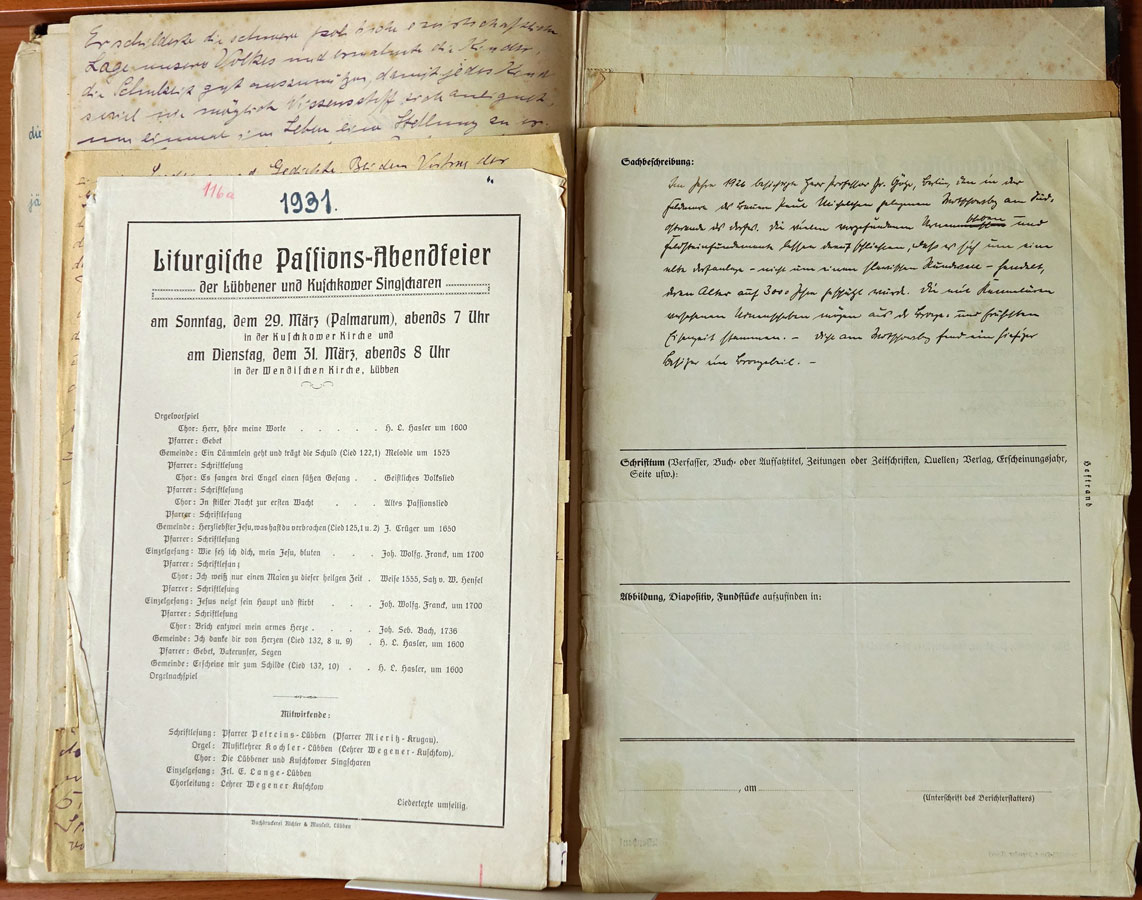 Er schilderte die schwere wirtschaftliche
Lage unseres Volkes und ermahnte die Kinder,
die Schulzeit gut auszunützen, damit jedes Kind
soviel wie möglich Wissensstoff sich aneignet,
um einmal im Leben eine Stellung zu er-
die
jä
und Gedichte. Bei dem Vortrag der
116a
1931.
Liturgiſche Paſſions-Abendfeier
der Lübbener und Kuſchkower Singſcharen
am Sonntag, dem 29. März (Palmarum), abends 7 Uhr
in der Kuſchkower Kirche und
am Dienstag, dem 31. März, abends 8 Uhr
in der Wendiſchen Kirche, Lübben
Orgelvorſpiel
Chor: Herr, höre meine Worte . . . . . H. L. Hasler um 1600
Pfarrer: Gebet
Gemeinde: Ein Lämmlein geht und trägt die Schuld (Lied 122,1) Melodie um 1525
Pfarrer: Schriftleſung
Chor: Es ſangen drei Engel einen ſüßen Geſang . . Geiſtliches Volkslied
Pfarrer: Schriftleſung
Chor: In ſtiller Nacht zur erſten Wacht . . . Altes Paſſionslied
Pfarrer: Schriftleſung
Gemeinde: Herzliebſter Jeſu, was haſt du verbrochen (Lied 125,1 u. 2) J. Crüger um 1650
Pfarrer: Schriftleſung
Einzelgeſang: Wie ſeh ich dich, mein Jeſu, bluten . . . Joh. Wolfg. Franck, um 1700
Pfarrer: Schriftleſung
Chor: Ich weiß nur einen Maien zu dieſer heilgen Zeit . Weiſe 1555, Satz v. W. Henſel
Pfarrer: Schriftleſung
Einzelgeſang: Jeſus neigt ſein Haupt und ſtirbt . . . Joh. Wolfg. Franck, um 1700
Pfarrer: Schriftleſung
Chor: Brich entzwei mein armes Herze . . . . Joh. Seb. Bach, 1736
Gemeinde: Ich danke dir von Herzen (Lied 132, 8 u. 9) . H. L. Hasler, um 1600
Pfarrer: Gebet, Vaterunſer, Segen
Gemeinde: Erſcheine mir zum Schilde (Lied 132, 10) . . H. L. Hasler, um 1600
Orgelnachſpiel
Mitwirkende:
Schriftleſung: Pfarrer Petreins-Lübben (Pfarrer Mieritz-Krugau).
Orgel: Muſiklehrer Kochler-Lübben (Lehrer Wegener-Kuſchkow).
Chor: Die Lübbener und Kuſchkower Singſcharen
Einzelgeſang: Frl. E. Lange-Lübben
Chorleitung: Lehrer Wegener Kuſchkow
Liedertexte umſeitig.
Buchdruckerei Richter & Munkelt, Lübben
Sachbeſchreibung:
Im Jahre 1926 beſichtigte Herr Profeſſor Dr. Götze, Berlin, den in der
Feldmark des Bauern Paul gelegenen am Süd-
oſtrande des Dorfes. Die vielen vorgefundenen Urnenſcherben und
Feldſteinfundamente laſſen darauf ſchließen, daß es ſich um eine
alte Dorfanlage – nicht um einen ſlawiſchen Rundwall – handelt,
deren Alter auf 3000 Jahre geſchätzt wurde. Die mit Kannelüren
verſehenen Urnenſcherben mögen aus der Bronze- und früheſten
Eiſenzeit ſtammen. – Dicht am fand ein hieſiger
Beſitzer ein Bronzebeil. –
Schrifttum (Verfaſſer, Buch- oder Aufſatztitel, Zeitungen oder Zeitſchriften, Quellen; Verlag, Erſcheinungsjahr,
Seite uſw.):
Heftrand
Abbildung, Diapoſitiv, Fundſtücke aufzufinden in:
, am
(Unterſchrift des Berichterſtatters)